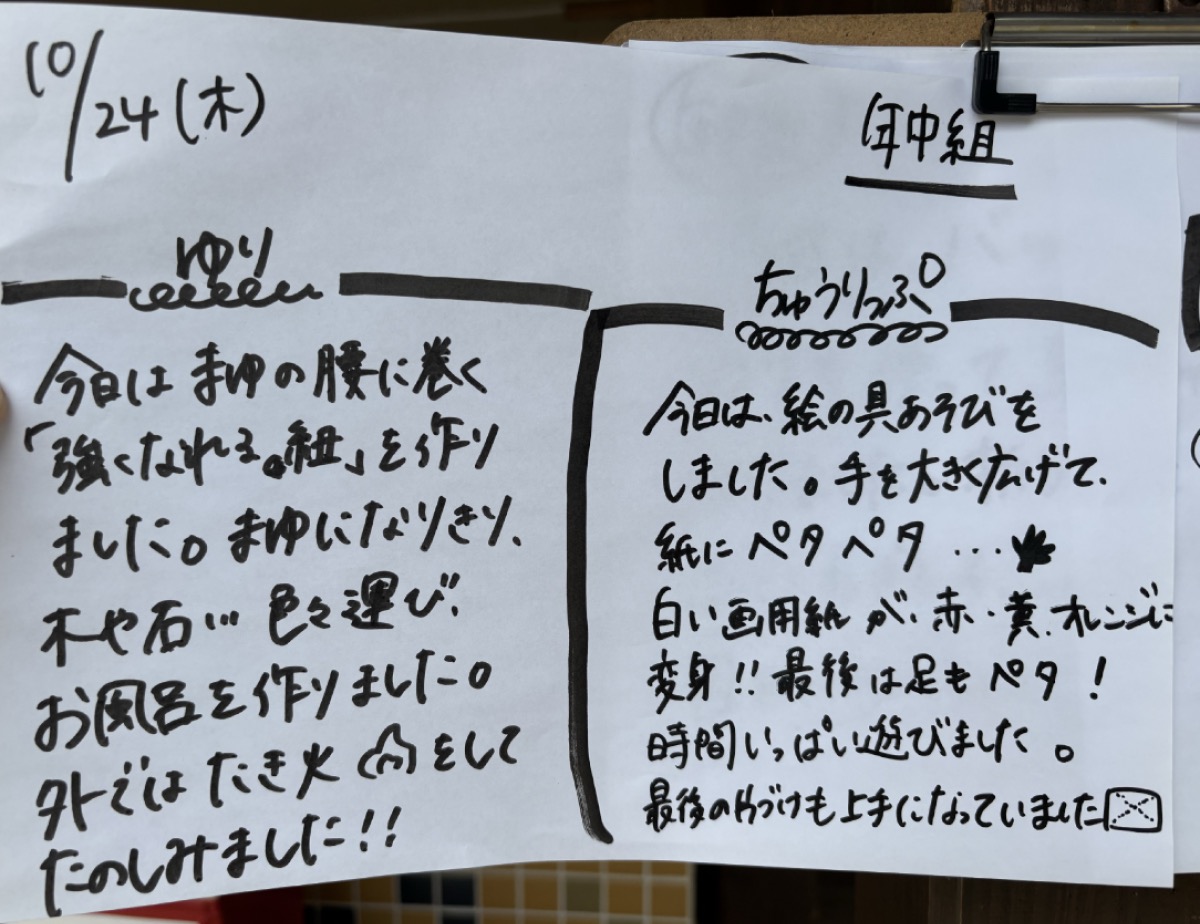 10/24(木)
年中組
ゆり
今日はまゆの腰に巻く
「強くなれる。紐」を作り
ました。まゆになりきり、
木や石… 色々運び、
お風呂を作りました。
外ではたき火をして
たのしみました!!
ちゅうりっぷ
今日は、絵の具あそびを
しました。手を大きく広げて、
紙にペタペタ…
白い画用紙が、赤・黄、オレンジに
変身!!最後は足もペタ!
時間いっぱい遊びました。
最後の片づけも上手になっていました